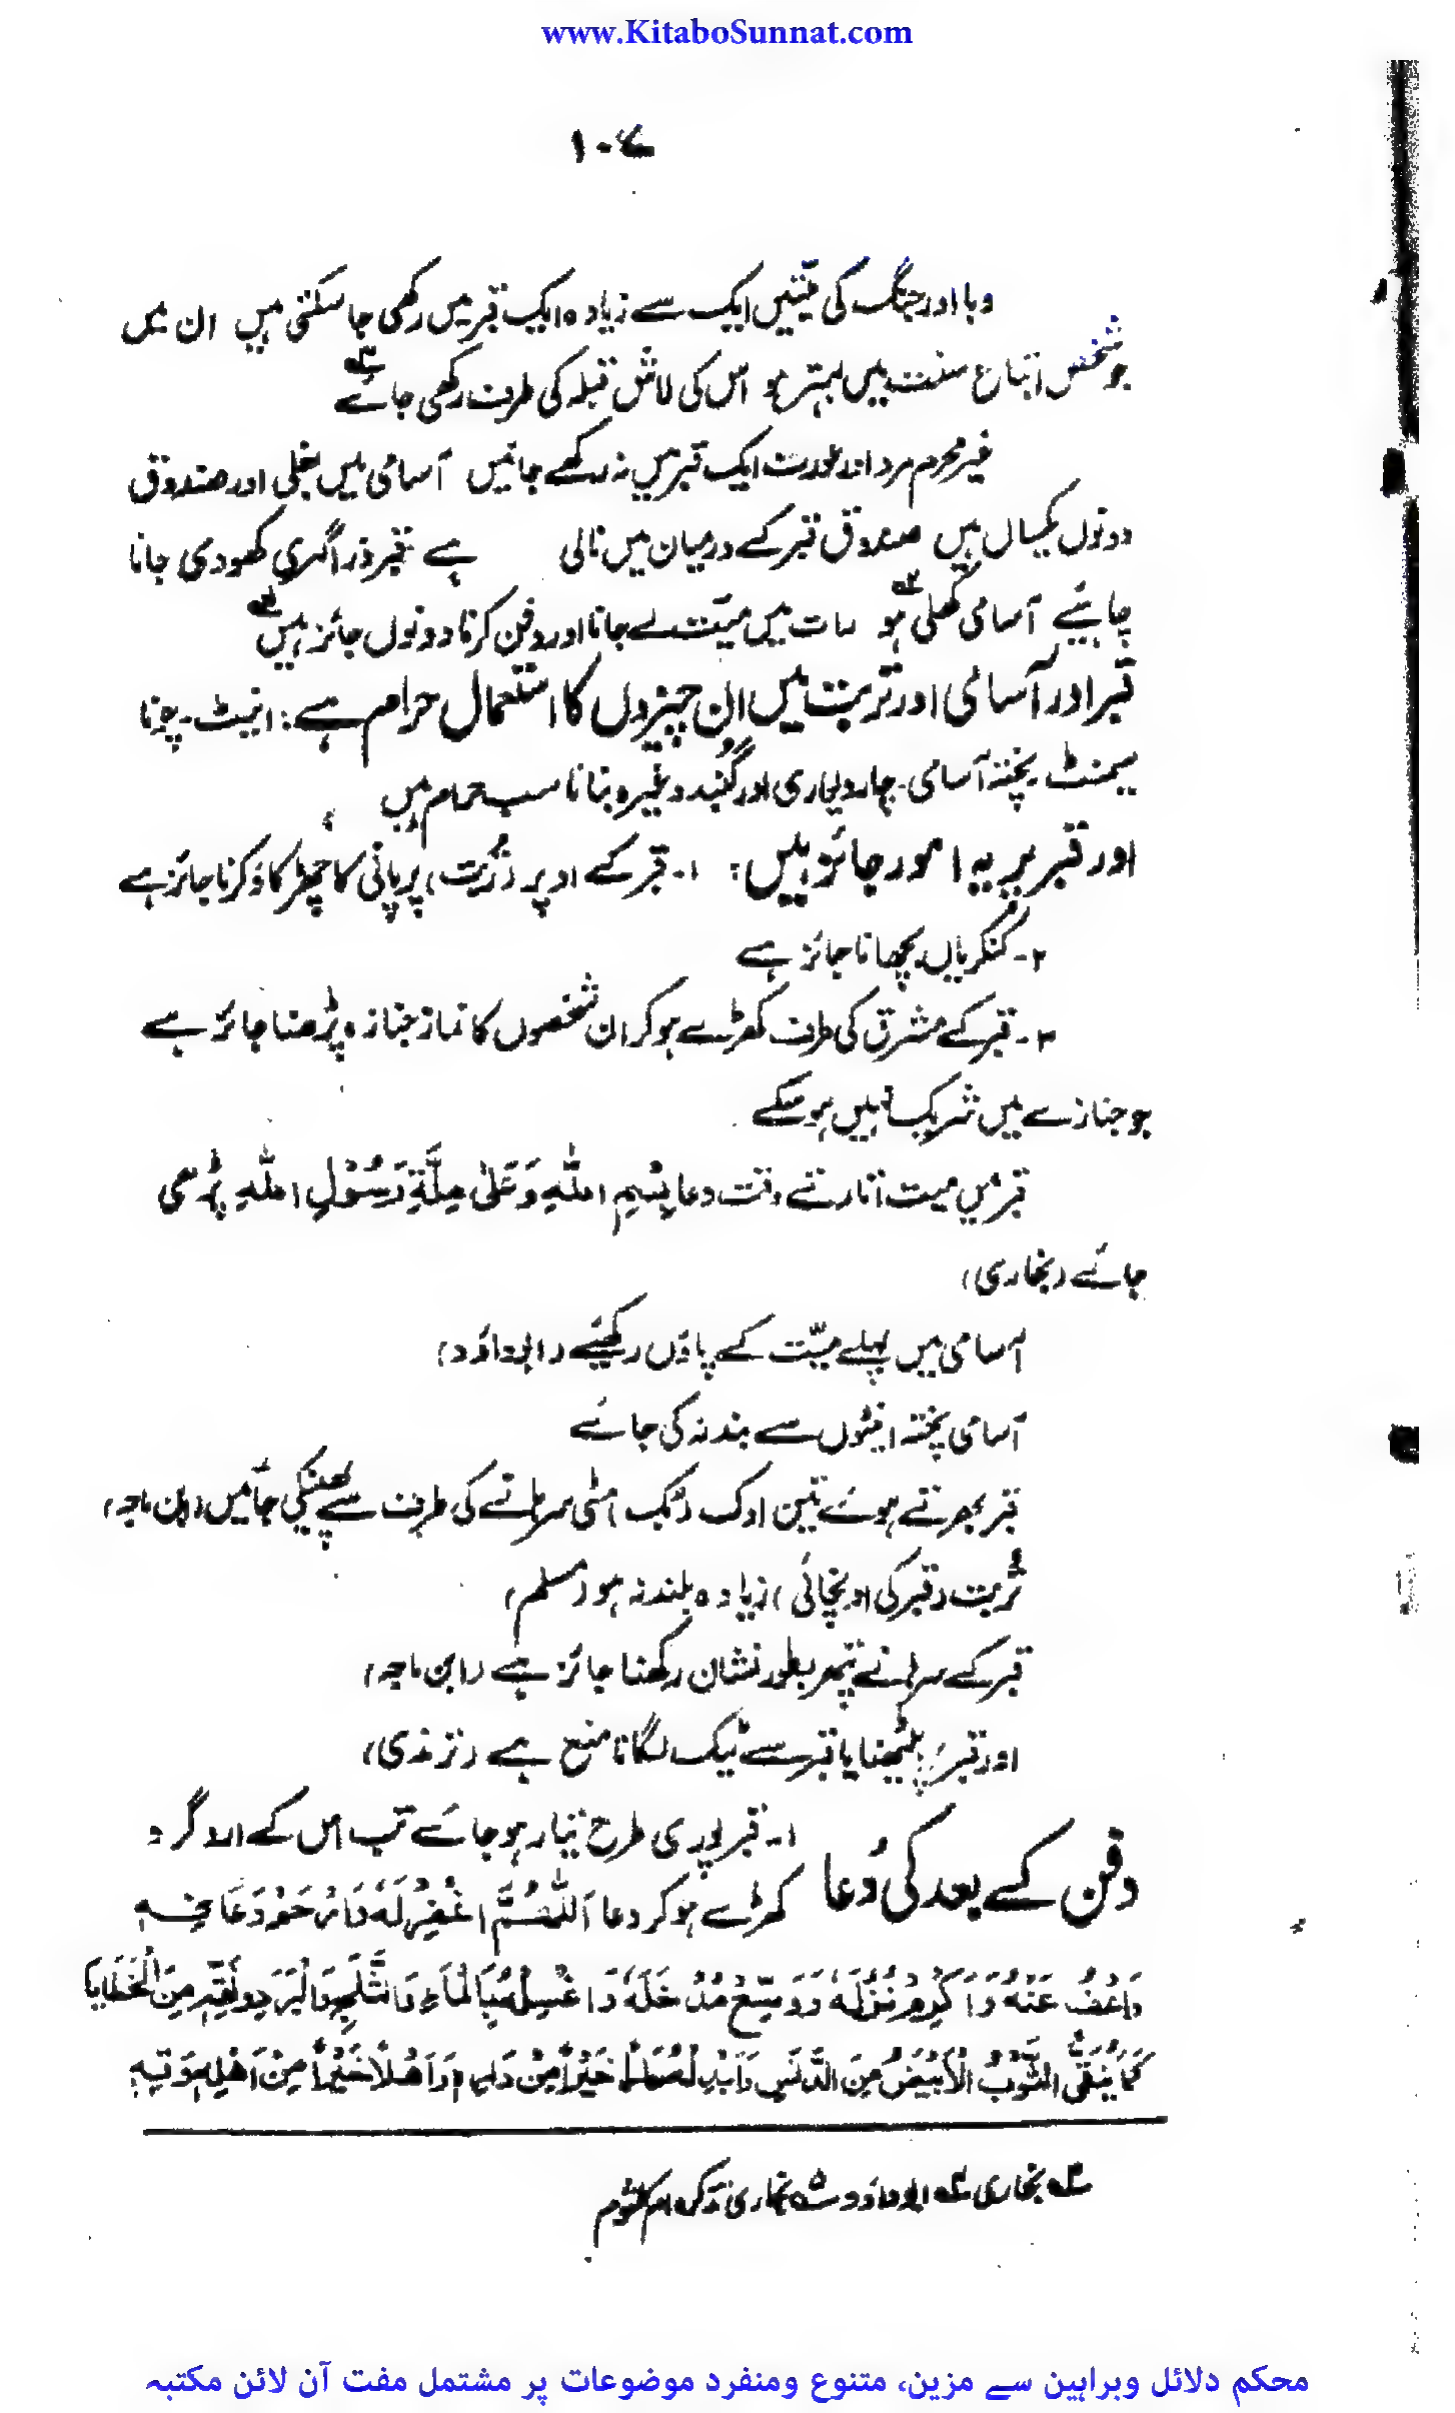 www.KitaboSunnat.com
۱۰۷
وبا اور جنگ کی میتیں ایک سے زیادہ ایک قبر میں رکھی جا سکتی ہیں ان میں
جو شخص اتباع سنت میں بہتر ہو اس کی لاش قبلہ کی طرف رکھی جائے ۳؎
غیر محرم مرد اور عورت ایک قبر میں نہ رکھے جائیں آسامی میں بغلی اور صندوق
دونوں یکساں ہیں صندوق قبر کے درمیان میں نالی ہے قبر ذرا گہری کھودی جانا
چاہئیے آسامی کھلی ہو ۴؎ رات میں میت لے جانا اور دفن کرنا دونوں جائز ہیں ۵؎
قبر اور آسامی اور تربت میں ان چیزوں کا استعمال حرام ہے: اینٹ۔ چونا
سیمنٹ۔ پختہ آسامی۔ چار دیواری اور گنبد وغیرہ بنانا سب حرام ہیں
اور قبر پر یہ امور جائز ہیں: ۱۔ قبر کے اوپر (تربت) پر پانی کا چھڑکاؤ کرنا جائز ہے
۲۔ کنکریاں بچھانا جائز ہے
۳۔ قبر کے مشرق کی طرف کھڑے ہو کر ان شخصوں کا نماز جنازہ پڑھنا جائز ہے
جو جنازے میں شریک نہیں ہو سکے
قبر میں میت اتارتے وقت دعا بِسْمِ اللّٰهِ وَعَلٰى مِلَّةِ رَسُوْلِ اللّٰهِ پڑھی
جائے (بخاری)
آسامی میں پہلے میّت کے پاؤں رکھیئے (ابوداؤد)
آسامی پختہ اینٹوں سے بند نہ کی جائے
قبر بھرتے ہوئے تین اوک (بک) مٹی سرہانے کی طرف سے پھینکی جائیں (ابن ماجہ)
تُربت (قبر کی اونچائی) زیادہ بلند نہ ہو (مسلم)
قبر کے سرہانے پتھر بطور نشان رکھنا جائز ہے (ابن ماجہ)
اور قبر پر بیٹھنا یا قبر سے ٹیک لگانا منع ہے (ترمذی)
دفن کے بعد کی دُعا ۱۔ قبر پوری طرح تیار ہو جائے تب اس کے ارد گرد
کھڑے ہو کر دعا اَللّٰهُمَّ اغْفِرْ لَهٗ وَارْحَمْهُ وَعَافِهٖ
وَاعْفُ عَنْهُ وَاَكْرِمْ نُزُلَهٗ وَوَسِّعْ مُدْخَلَهٗ وَاغْسِلْهُ بِالْمَاءِ وَالثَّلْجِ وَالْبَرَدِ وَنَقِّهٖ مِنَ الْخَطَايَا
كَمَا يُنَقَّى الثَّوْبُ الْاَبْيَضُ مِنَ الدَّنَسِ وَاَبْدِلْهُ دَارًا خَيْرًا مِّنْ دَارِهٖ وَاَهْلًا خَيْرًا مِّنْ اَهْلِهٖ وَقِهٖ
۳؎ بخاری ۴؎ ابوداؤد ۵؎ بخاری ذکر ام کلثوم
محکم دلائل وبراہین سے مزین، متنوع ومنفرد موضوعات پر مشتمل مفت آن لائن مکتبہ